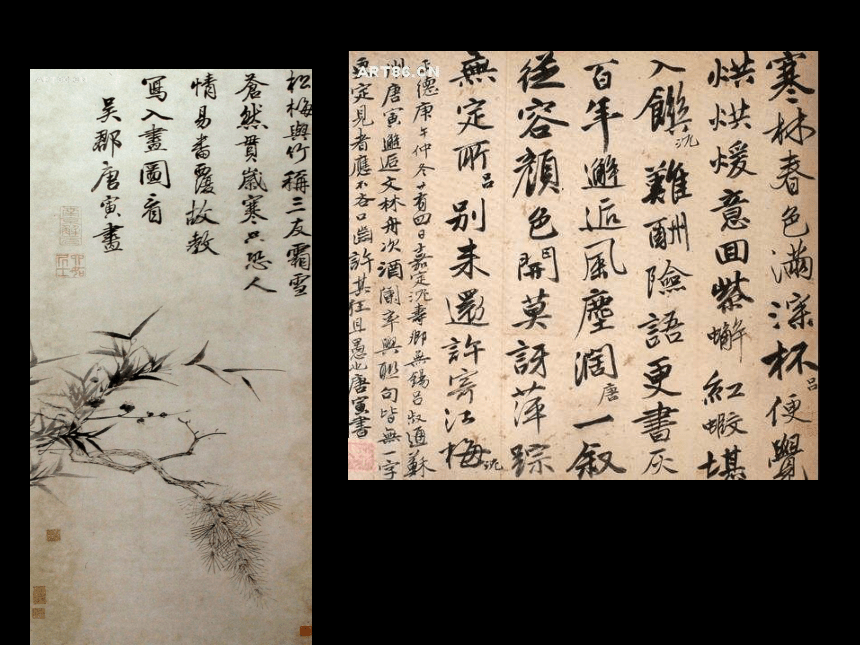 松梅與竹稱三友霜雪
蒼然貫歲寒只恐人
情易番覆故教
寫入畫圖看
吳郡唐寅畫
ART86.CN
寒林春色滿深杯呂便覺
烘烘煖意回紫蠏紅蝦堪
入饌沈難酬險語更書灰
百年邂逅風塵濶唐一叙
從容顏色開莫訝萍踪
無定所呂別來還許寄江梅沈
正德庚午仲冬廿有四日嘉定沈壽卿無錫呂叔通蘇
州唐寅邂逅文林舟次酒闌率興聯句皆無一字
更定見者應不吝口齒許其狂且愚也唐寅書